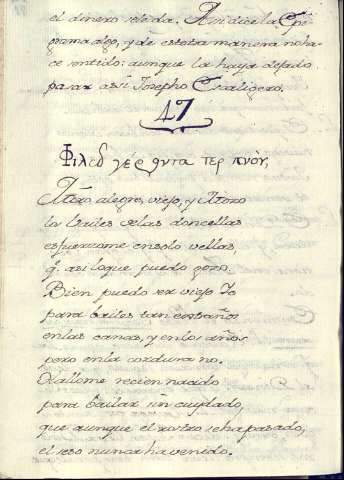 el dinero se le da. Asi dice la Epi
grama algo, y de essotra manera no ha
ce sentido: aunque la haya dejado
pasar assi Josepho Escaligero.
47
Φιλεῶ γέροντα τερπνὸν,
Amo alegre viejo, y Amo
los bailes de las doncellas
esfuerzome en solo vellas
q. asi lo que puedo gozo.
Bien puedo ser viejo Yo
para bailes tan estraños
en las canas, y en los años
pero en la cordura no.
Hallome recien nacido
para bailar sin cuydado
que aunque el rostro se ha pasado,
el seso nunca ha venido.